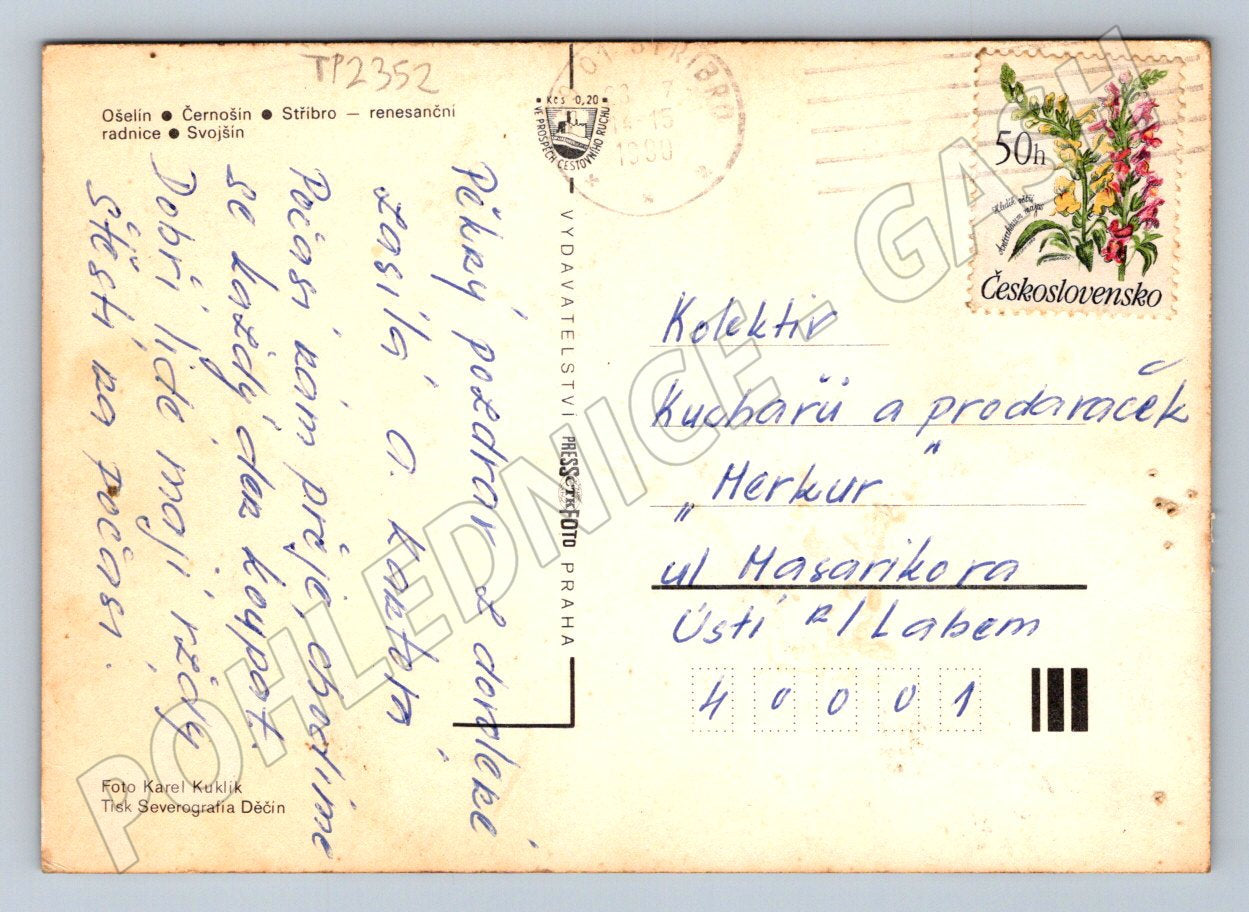 TP2352
Ošelín ● Černošín ● Stříbro — renesanční
radnice ● Svojšín
Kčs 0,20
VE PROSPĚCH CESTOVNÍHO RUCHU
01 STŘÍBRO
14-15
1990
50h
Hledík větší
Antirrhinum majus
Československo
Pěkný pozdrav z dovolené
zasílá
Počasí nám přeje, chodíme
se každý den koupat.
Dobří lidé mají vždy
štěstí na počasí.
VYDAVATELSTVÍ PRESSFOTO PRAHA
ČTK
Kolektiv
Kuchařů a prodavaček
„Merkur"
ul Masarikova
Ústí n/Labem
40001
Foto Karel Kuklík
Tisk Severografia Děčín
POHLEDNICE - GASH